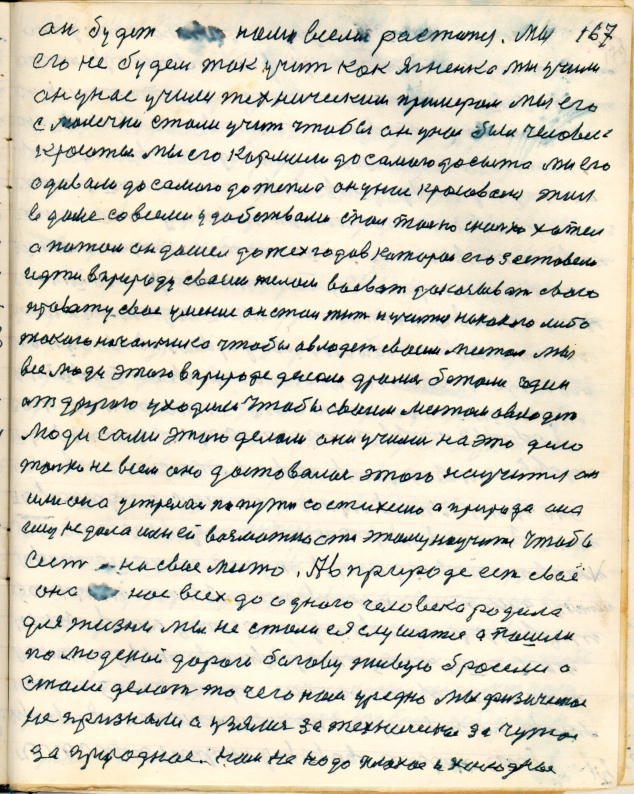 он будет нами всеми растити. Мы 167
его не будем так учит как ягненка мы учили
он у нас учили техническим примером мы его
с молечка стали учит чтобы он у нас был человек
красоты мы его кормили до самого досыта мы его
одивали до самого до тепла он у нас красовался жил
в доме со всеми удобствами спал только сколко хотел
а потом он дошел до тех годов каторои его зоставели
идти в природу своим телом воеват доказыват свою
правату свое умение он стал тит и учит накакого либо
такого началника чтобы овлодет своим местом мы
все люди этого в природе делали драмы ботали один
от другого уходили чтобы своим местом овлодет
люди сами этого делали они учили на это дело
толко не всем оно доставалас этого научится он
или она устрелас по пути со стихиею а природа она
ему не дала или ей возможности этому научит чтобы
сест на свое место. А в природе ест своё
она нас всех до одного человека родила
для жизни мы не стали ея слушатся а пошли
по людской дорого богову живую бросели а
стали делат то чего нам уредно мы физическое
не признали а узялис за техническое за чужое
за природное. Нам не надо плохое и холодное